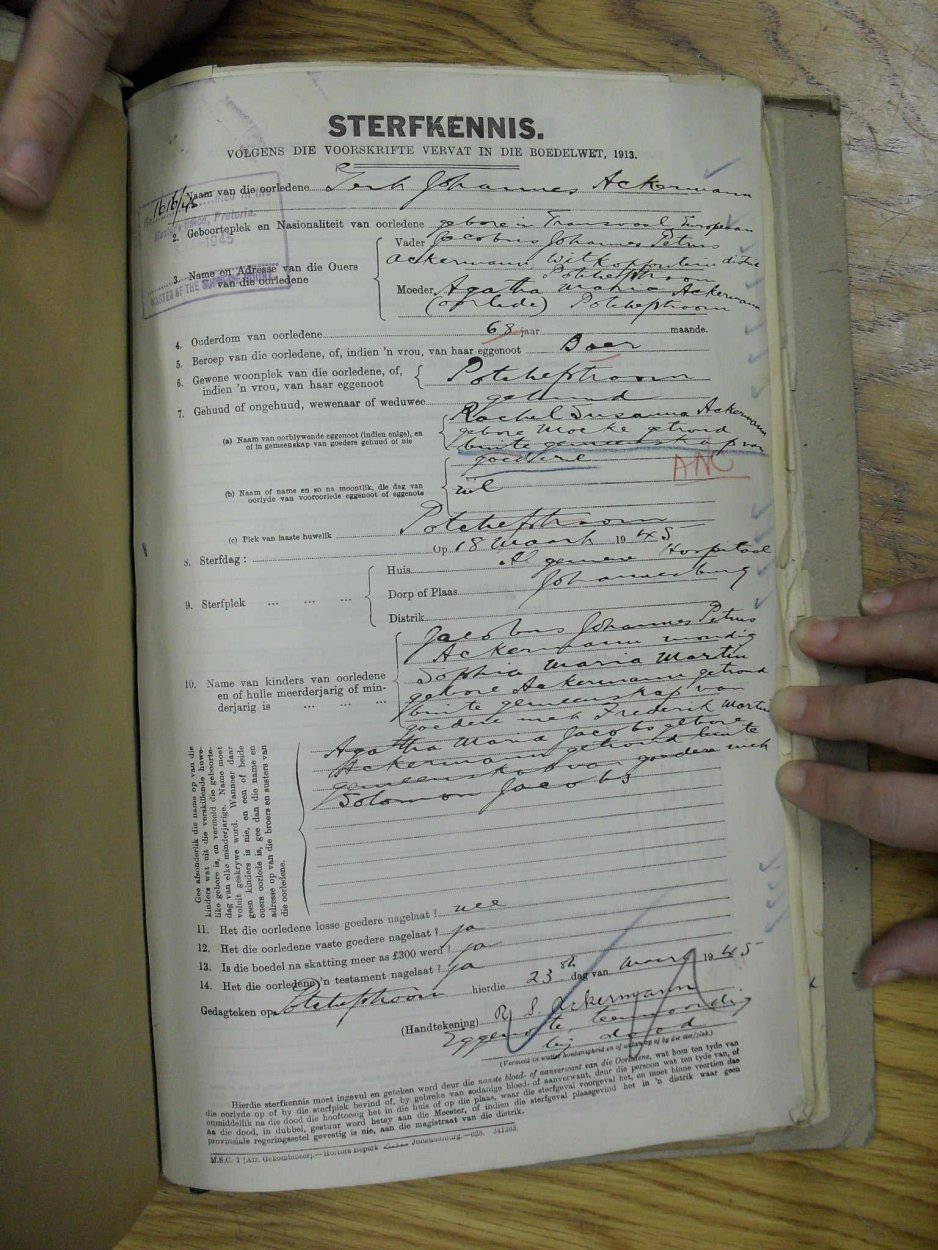 STERFKENNIS.
VOLGENS DIE VOORSKRIFTE VERVAT IN DIE BOEDELWET, 1913.
1616/45
Master's Office, Pretoria.
1945
MASTER OF THE
Naam van die oorledene Johannes Ackermann
2. Geboorteplek en Nasionaliteit van oorledene gebore in Transvaal European
3. Name en Adresse van die Ouers van die oorledene
Vader Jacobus Johannes Petrus
Ackermann Witkopfontein distrik
Potchefstroom
Moeder Agatha Maria Ackermann
(oorlede) Potchefstroom
4. Ouderdom van oorledene 68 jaar maande.
5. Beroep van die oorledene, of, indien 'n vrou, van haar eggenoot Boer
6. Gewone woonplek van die oorledene, of, indien 'n vrou, van haar eggenoot Potchefstroom
7. Gehuud of ongehuud, wewenaar of weduwee getroud
(a) Naam van oorblywende eggenoot (indien enige), en of in gemeenskap van goedere gehuud of nie
Rachel Susanna Ackermann
gebore Mocke getroud
buite gemeenskap van
goedere
ANC
(b) Naam of name en so na moontlik, die dag van oorlyde van vooroorlede eggenoot of eggenote nil
(c) Plek van laaste huwelik Potchefstroom
8. Sterfdag: Op 18 Maart 1945
9. Sterfplek ... ... ...
Huis Algemene Hospitaal
Dorp of Plaas Johannesburg
Distrik
10. Name van kinders van oorledene en of hulle meerderjarig of minderjarig is ... ... ...
Jacobus Johannes Petrus
Ackermann mondig
Sophia Maria Martin
gebore Ackermann getroud
buite gemeenskap van
goedere met Frederik Martin
Agatha Maria Jacobs gebore
Ackermann getroud buite
gemeenskap van goedere met
Solomon Jacobs
Gee afsonderlik die name op van die
kinders wat uit die verskillende huwe-
like gebore is, en vermeld die geboorte-
dag van elke minderjarige. Name moet
voluit geskrywe word. Wanneer daar
geen kinders is nie, en een of beide
ouers oorlede is, gee dan die name en
adresse op van die broers en susters van
die oorledene.
11. Het die oorledene losse goedere nagelaat? nee
12. Het die oorledene vaste goedere nagelaat? ja
13. Is die boedel na skatting meer as £300 werd? ja
14. Het die oorledene 'n testament nagelaat? ja
Gedagteken op Potchefstroom hierdie 23ste dag van Maart 1945
(Handtekening) R. S. Ackermann
Eggenote, teenwoordig
by dood
(Vermeld in watter hoedanigheid en of aanwesig op of by die sterfplek.)
Hierdie sterfkennis moet ingevul en geteken word deur die naaste bloed- of aanverwant van die Oorledene, wat hom ten tyde van
die oorlyde op of by die sterfplek bevind of, by gebreke van sodanige bloed- of aanverwant, deur die persoon wat ten tyde van, of
onmiddellik na die dood die hooftoesig het in die huis of op die plaas, waar die sterfgeval voorgeval het, en moet binne veertien dae
na die dood, in dubbel, gestuur word hetsy aan die Meester, of indien die sterfgeval plaasgevind het in 'n distrik waar geen
provinsiale regeringssetel gevestig is nie, aan die magistraat van die distrik.
M.S.C. 1 [Afr. Gekombineer].—Hortors Beperk Johannesburg.—628. 341363.